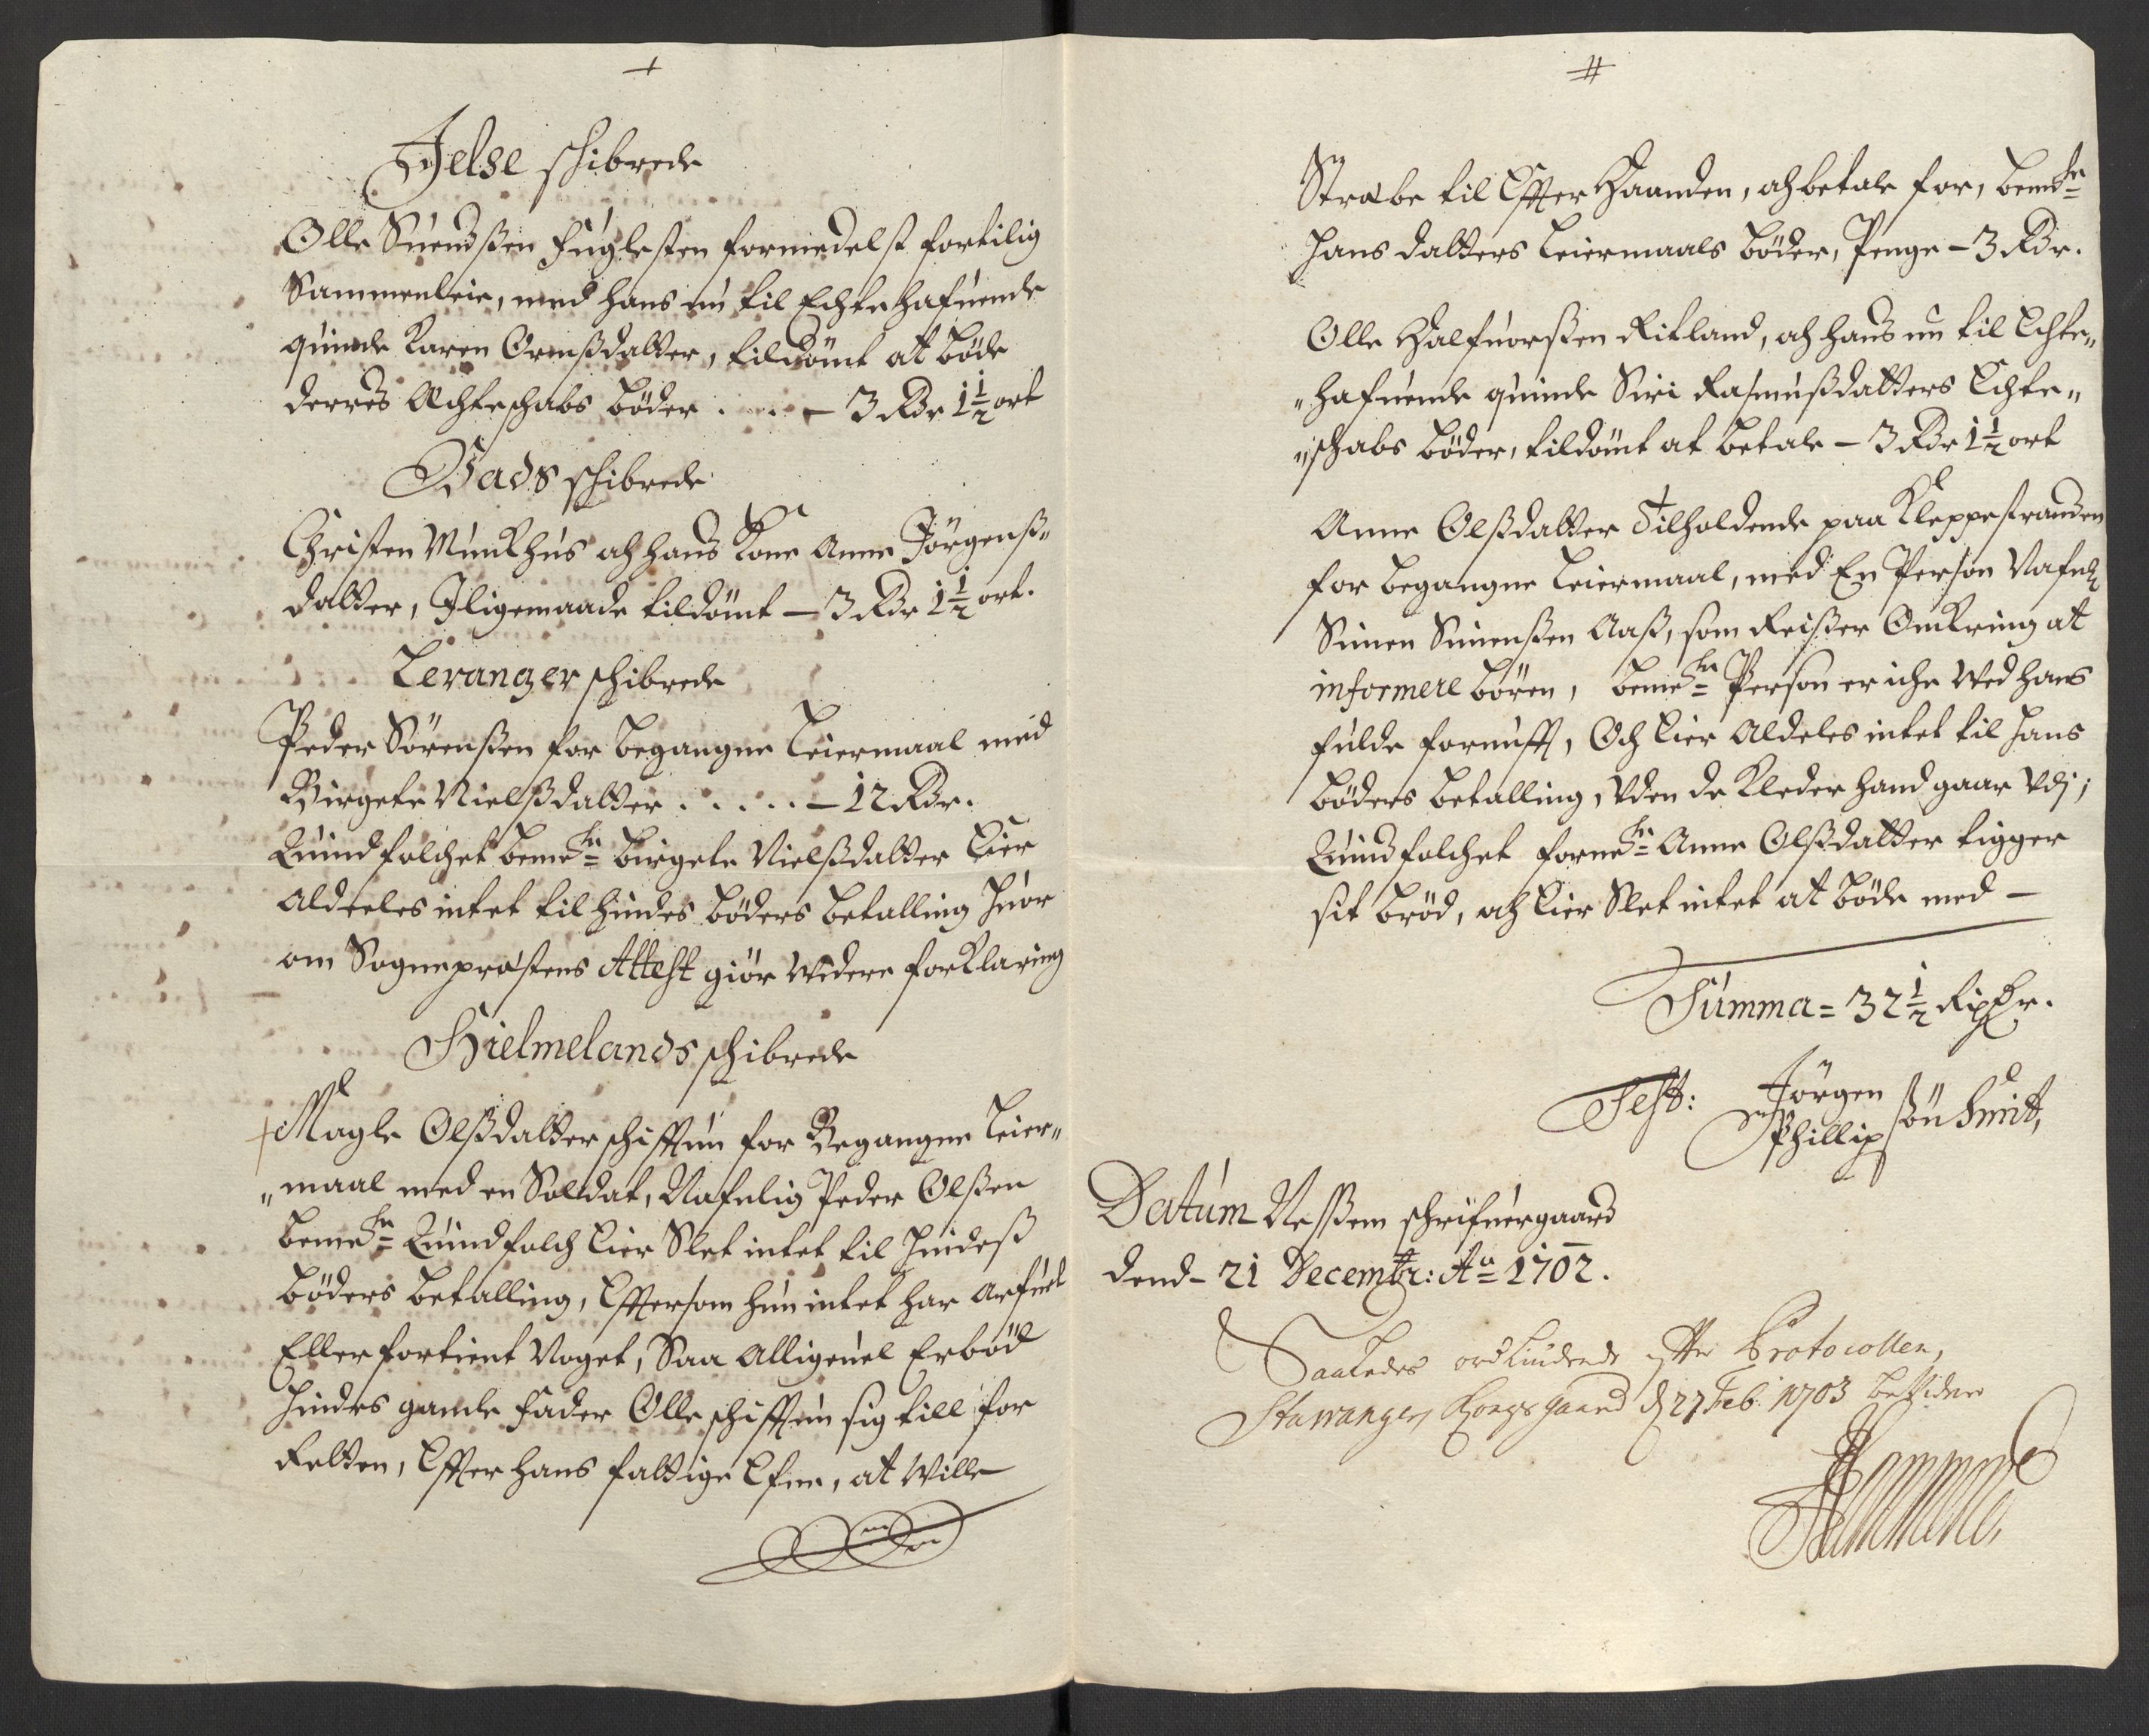 Jelse schibrede
Olle Suendßen Fuglesten formedelst fortilig
Sammenleie, med hans nu til Echte hafuende
quinde Karen Ormßdatter, tildömt at böde
derres Æchteschabs böder . . . – 3 Rdr 1½ ort
Vads schibrede
Christen Munkhus och hans Kone Anne Jörgenß„
datter, Iligemaade tildömt – 3 Rdr 1½ ort.
Leranger schibrede
Peder Sörenßen for begangne Leiermaal med
Birgete Nielßdatter . . . . . – 12 Rdr.
Quindfolchet bemte Birgete Nielßdatter Eier
aldeeles intet til hindes böders betalling huor
om Sognepræstens Attest giör videre forklaring
Hielmelands schibrede
Magle Olßdatter schifftun for Begangne Leier„
„maal med en Soldat, Nafnlig Peder Olßen
bemte Quindfolch Eier Slet intet til hindeß
böders betalling, Efftersom hun intet har arfuet
Eller fortient Noget, Saa alligeuel Erböd
hindes gamle Fader Olle schifftun sig till for
Retten, Effter hans fattige Efne, at Wille
Stræbe til Effter Haanden, och betale for, bemte
hans datters Leiermaals böder, Penge – 3 Rdr.
Olle Halfuorßen Ritland, och hans nu til Echte„
„hafuende quinde Siri Rasmußdatters Echte„
„schabs böder, tildömt at betale – 3 Rdr 1½ ort
Anne Olßdatter Tilholdende paa Kleppestranden
for begangne Leiermaal, med En Person Nafnl
Simen Simenßen Aaß, som Reißer Omkring at
informere börn, bemte Person er iche Wed hans
fulde fornufft, Och Eier Aldeles intet til hans
böders betalling, Uden de Kleder hand gaar Udj;
Quindfolchet fornte Anne Olßdatter tigger
sit bröd, och Eier Slet intet at böde med –
Summa = 32½ Rixdr.
Test: Jörgen
Phillipsön Smit,
Datum Neßem schrifuergaard
dend – 21 Decembr: Ao 1702.
Saaledes ordliudende effter Protocollen,
Stavanger Kongsgaard d 27 Feb. 1703 bestider